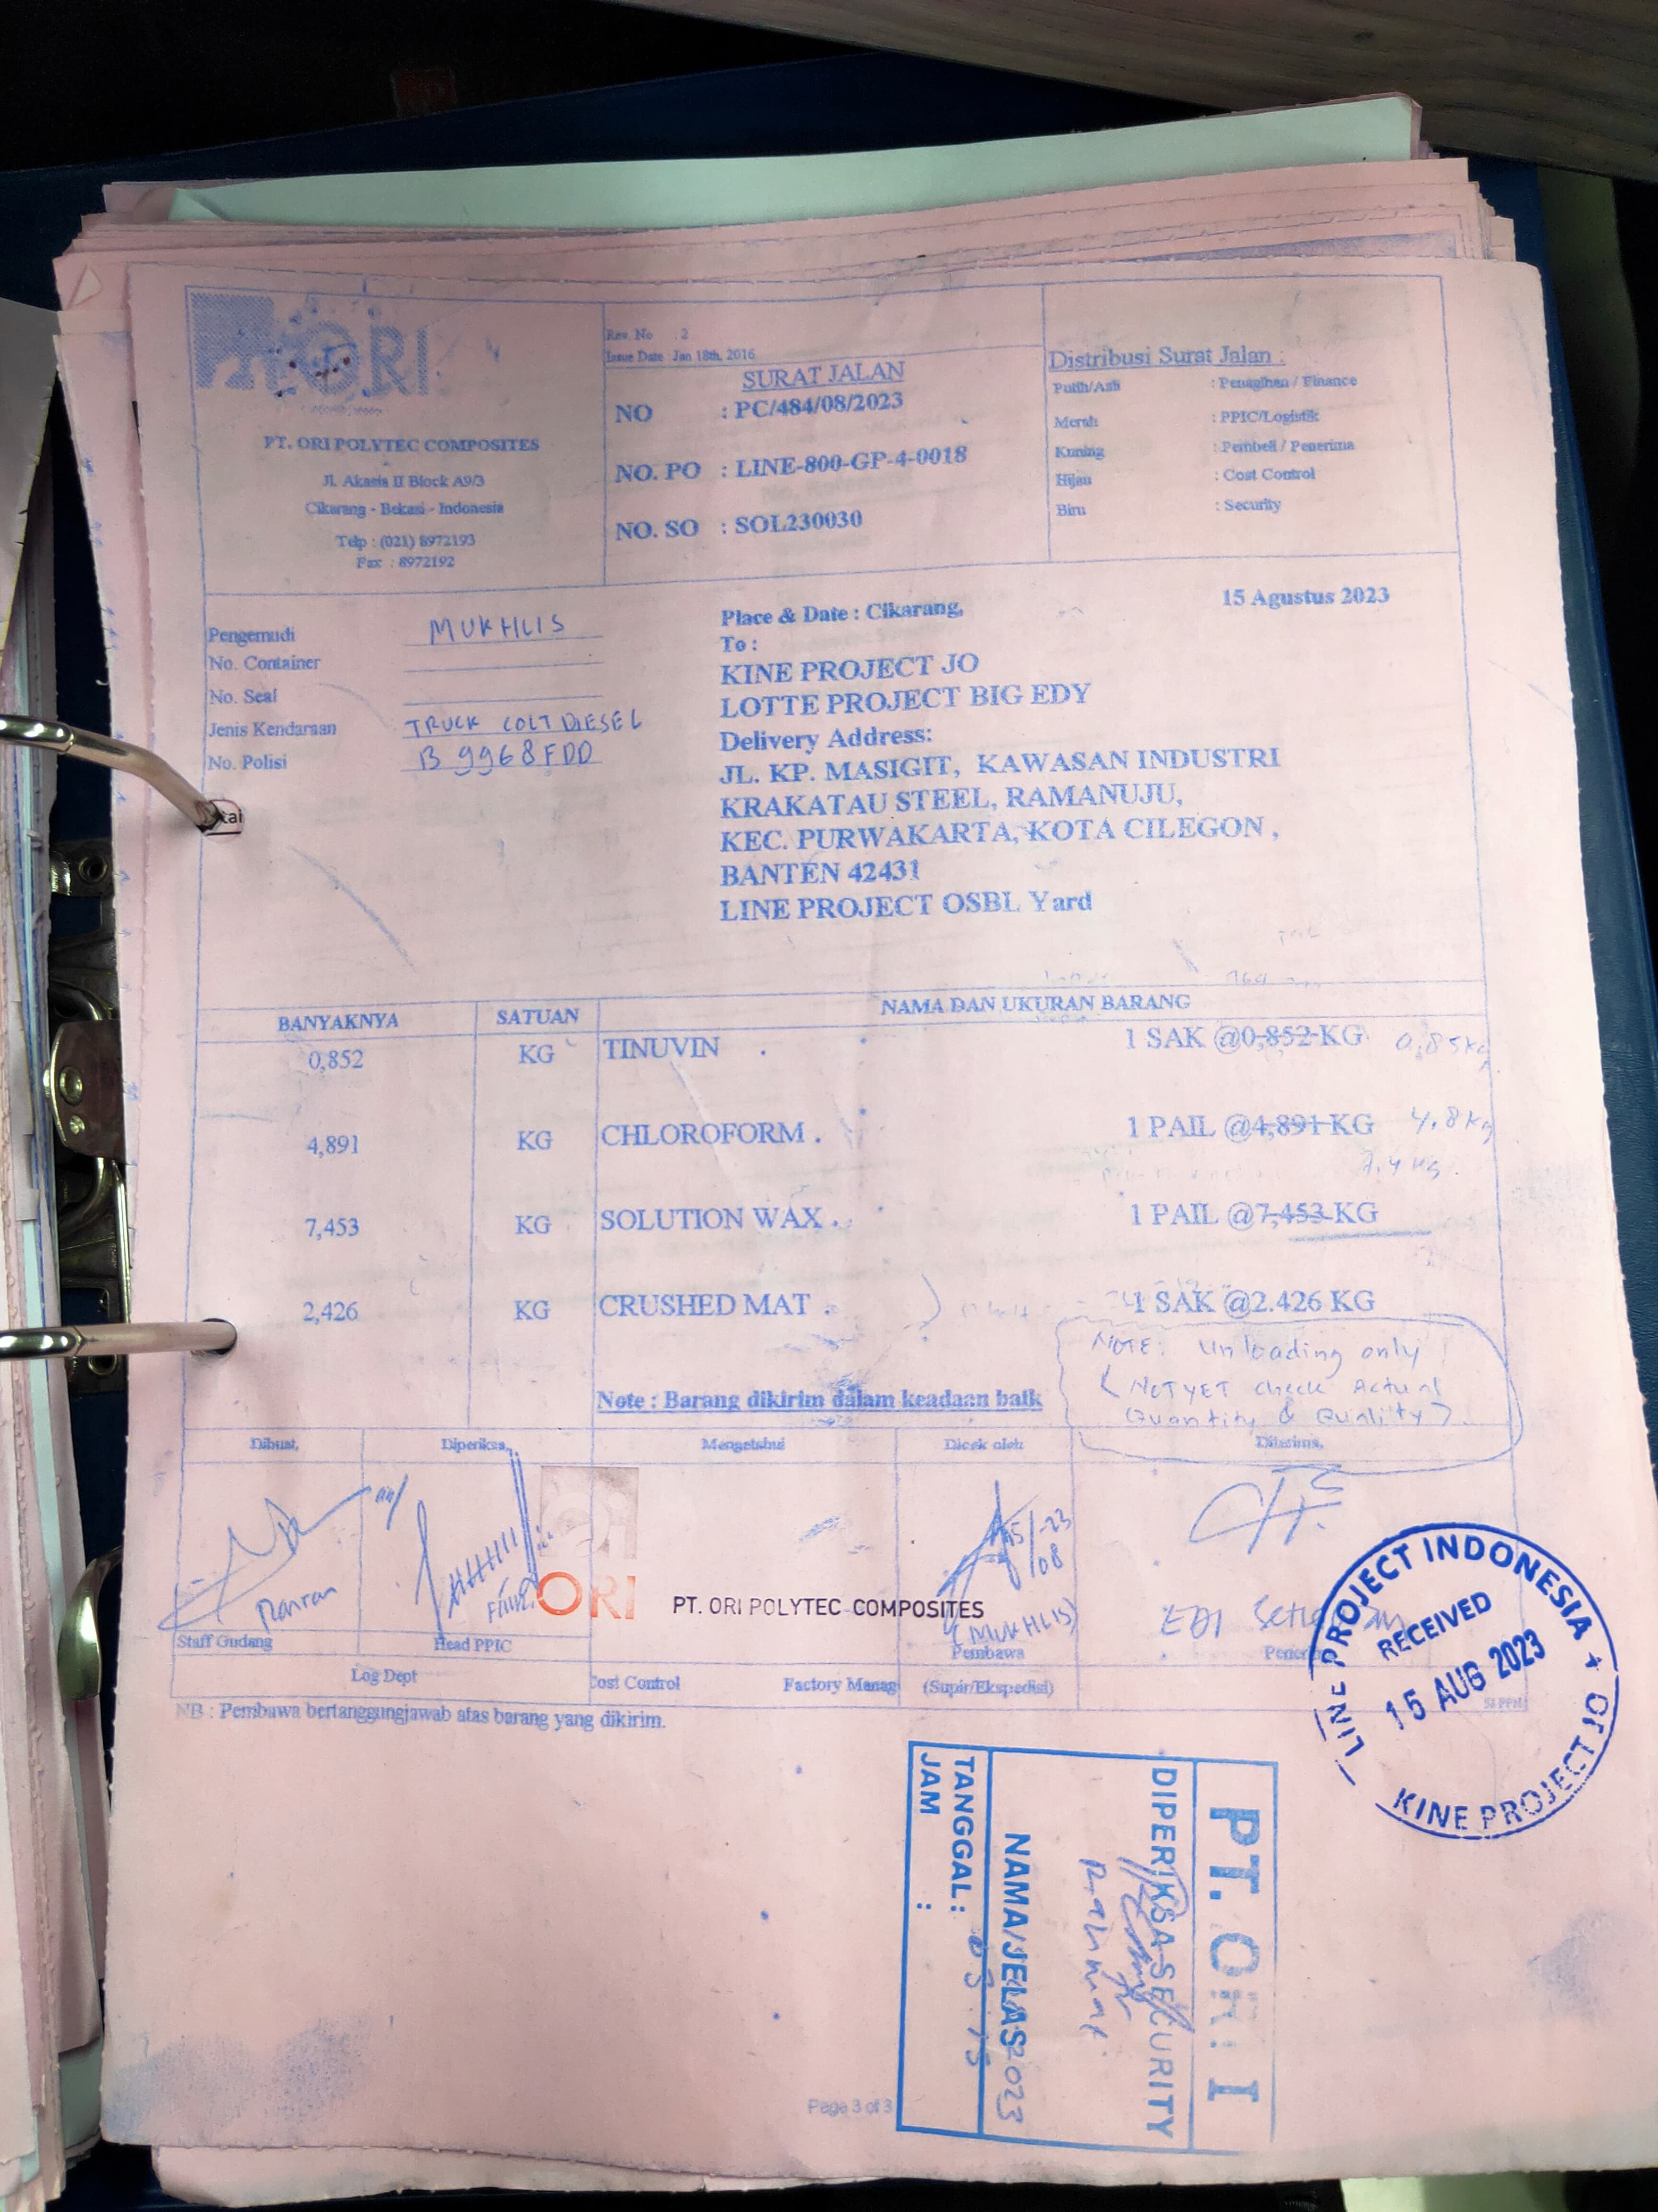 ORI
PT. ORI POLYTEC COMPOSITES
Jl. Akasia II Block A9/3
Cikarang - Bekasi - Indonesia
Telp : (021) 8972193
Fax : 8972192
Rev. No : 2
Issue Date Jan 18th, 2016
SURAT JALAN
NO : PC/484/08/2023
NO. PO : LINE-800-GP-4-0018
NO. SO : SOL230030
Distribusi Surat Jalan :
Putih/Asli : Penagihan / Finance
Merah : PPIC/Logistik
Kuning : Pembeli / Penerima
Hijau : Cost Control
Biru : Security
Pengemudi MUKHLIS
No. Container
No. Seal
Jenis Kendaraan TRUCK COLT DIESEL
No. Polisi B 9968 FDD
Place & Date : Cikarang, 15 Agustus 2023
To :
KINE PROJECT JO
LOTTE PROJECT BIG EDY
Delivery Address:
JL. KP. MASIGIT, KAWASAN INDUSTRI
KRAKATAU STEEL, RAMANUJU,
KEC. PURWAKARTA, KOTA CILEGON ,
BANTEN 42431
LINE PROJECT OSBL Yard
BANYAKNYA SATUAN NAMA DAN UKURAN BARANG
0,852 KG TINUVIN . 1 SAK @0,852 KG 0,85kg
4,891 KG CHLOROFORM . 1 PAIL @4,891 KG 4,8 kg
7.4 kg.
7,453 KG SOLUTION WAX . 1 PAIL @7,453 KG
2,426 KG CRUSHED MAT . 1 SAK @2.426 KG
NOTE: Unloading only
(NOT YET check Actual
Quantity & Quality).
Note : Barang dikirim dalam keadaan baik
Dibuat, Diperiksa, Mengetahui Dicek oleh Diterima,
15/-23
08
ORI PT. ORI POLYTEC COMPOSITES
(MUKHLIS)
EDI
Staff Gudang Head PPIC Pembawa
Log Dept Cost Control Factory Manag (Supir/Ekspedisi)
NB : Pembawa bertanggungjawab atas barang yang dikirim.
LINE PROJECT INDONESIA + OF
RECEIVED
15 AUG 2023
KINE PROJECT
PT. ORI
DIPERIKSA SECURITY
Rahmat
NAMA/JELAS 2023
TANGGAL :
JAM :
Page 3 of 3